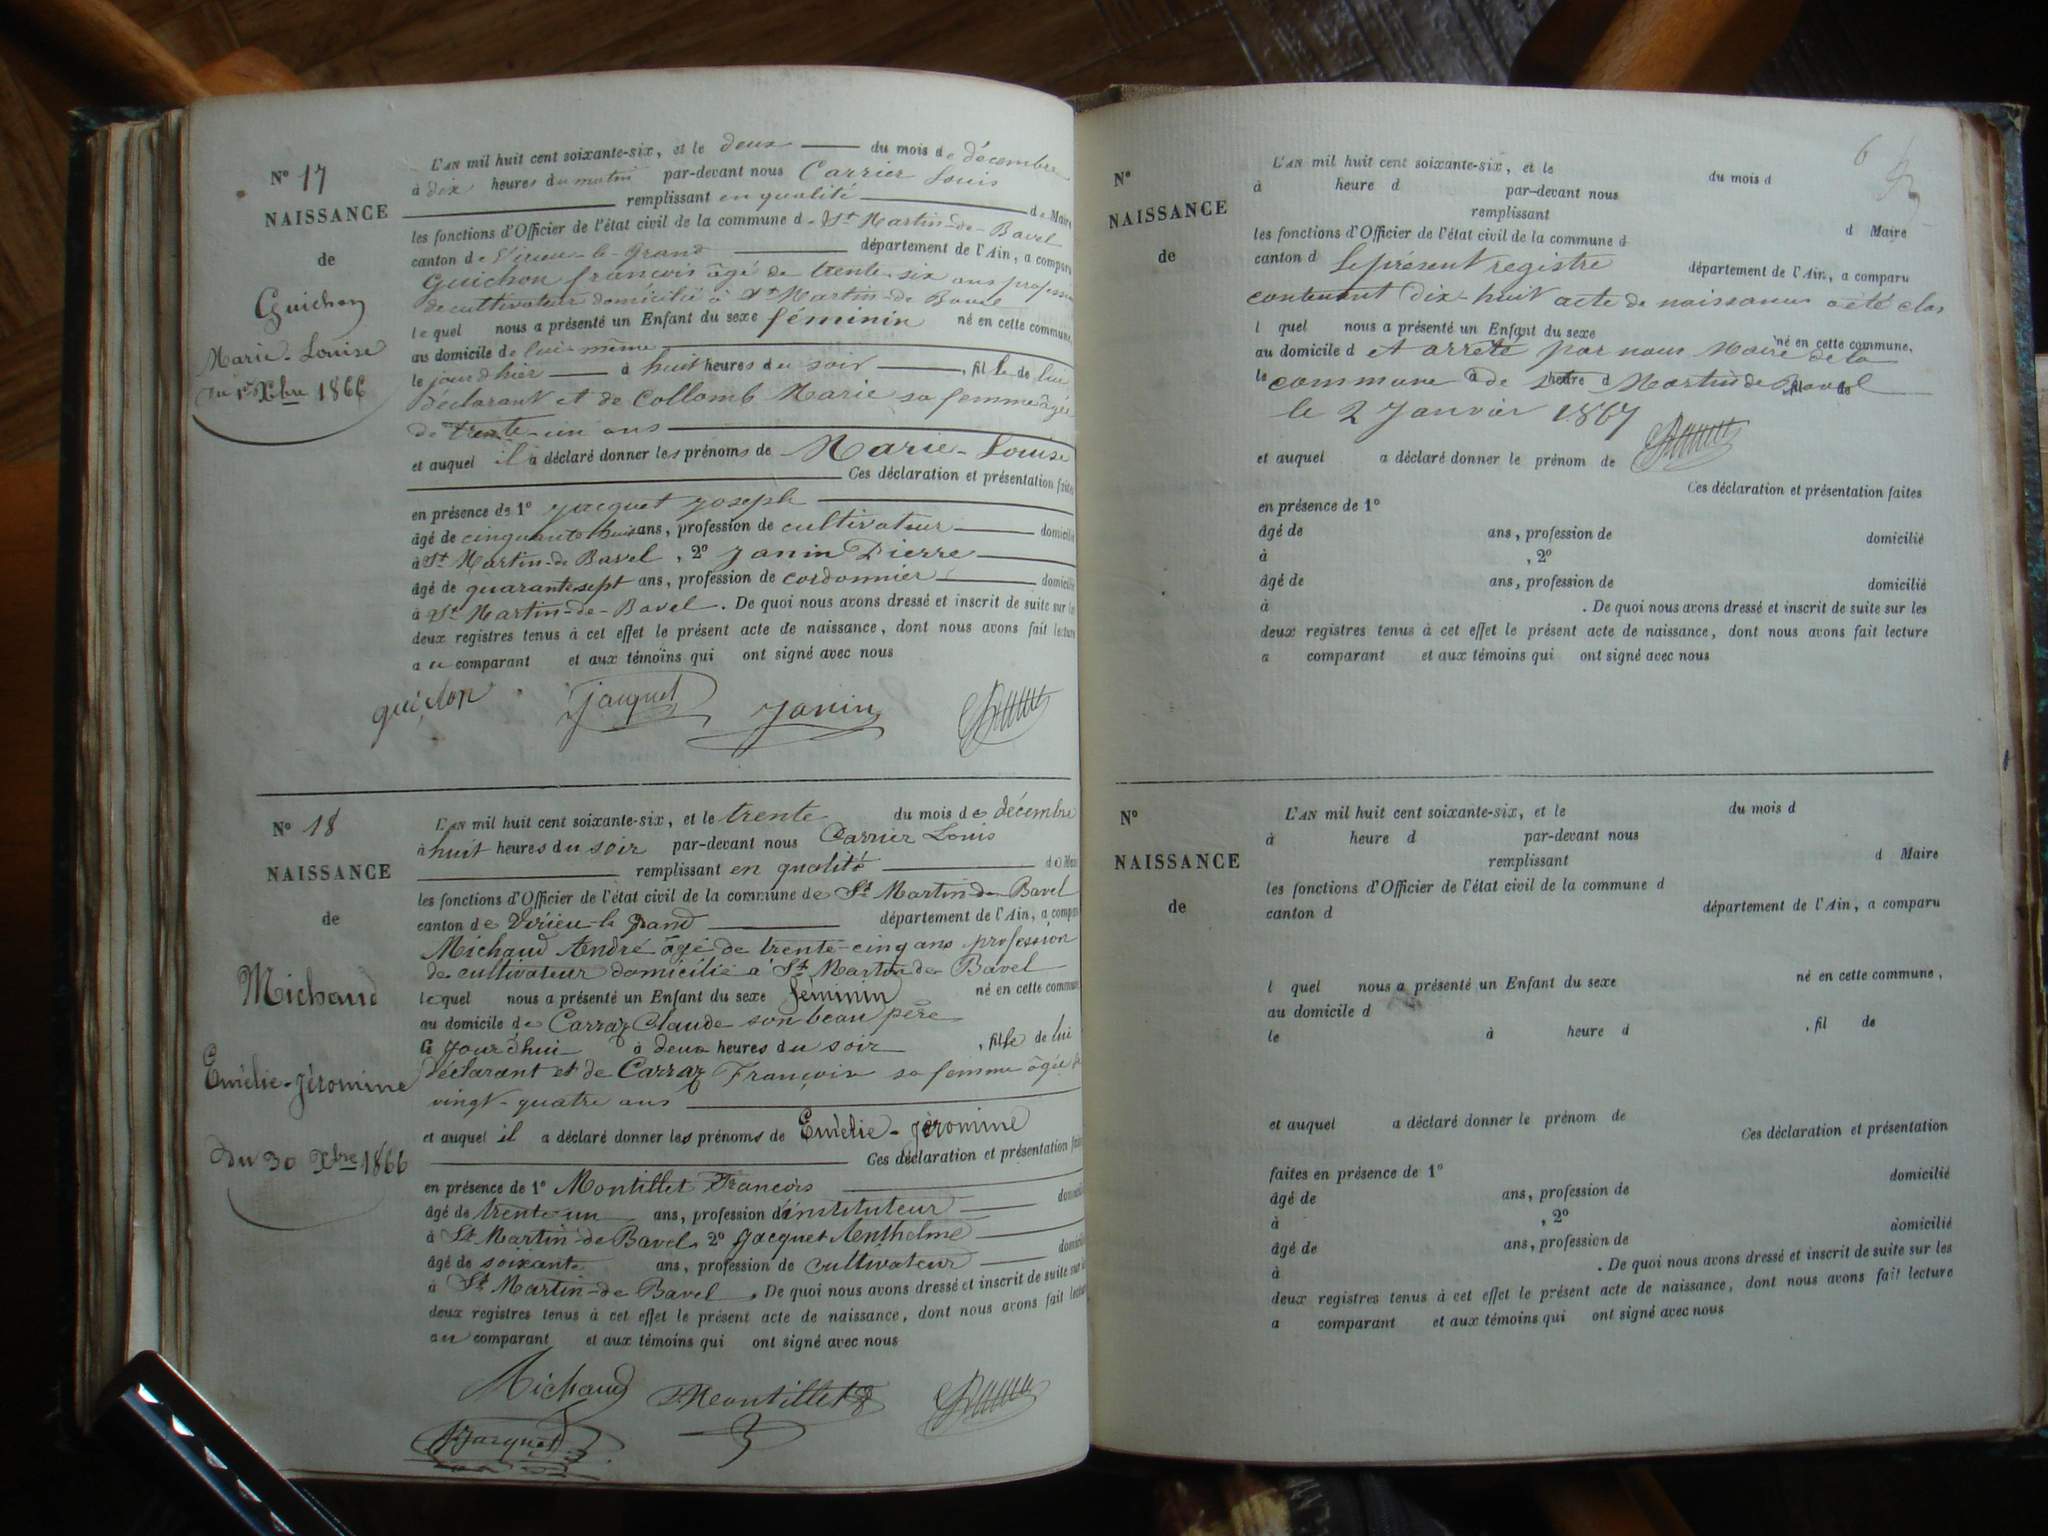 N° 17
NAISSANCE
de
Guichon
Marie-Louise
du 1er Xbre 1866
L'AN mil huit cent soixante-six, et le deux du mois de décembre
à dix heures du matin par-devant nous Carrier Louis
remplissant en qualité de Maire
les fonctions d'Officier de l'état civil de la commune de St Martin-de-Bavel
canton de Virieu-le-Grand département de l'Ain, a comparu
Guichon françois âgé de trente-six ans profession
de cultivateur domicilié à St Martin-de Bavel
lequel nous a présenté un Enfant du sexe féminin né en cette commune,
au domicile de lui-même
le jour d'hier à huit heures du soir, fille de lui
déclarant et de Collomb Marie sa femme âgée
de trente-un ans
et auquel il a déclaré donner les prénoms de Marie-Louise
Ces déclaration et présentation faites
en présence de 1° Jacquet Joseph
âgé de cinquante huit ans, profession de cultivateur domicilié
à St Martin-de Bavel, 2° Janin Pierre
âgé de quarante sept ans, profession de cordonnier domicilié
à St Martin-de-Bavel. De quoi nous avons dressé et inscrit de suite sur les
deux registres tenus à cet effet le présent acte de naissance, dont nous avons fait lecture
au comparant et aux témoins qui ont signé avec nous
guichon Jacquet Janin
N° 18
NAISSANCE
de
Michaud
Emélie-Jéromine
du 30 Xbre 1866
L'AN mil huit cent soixante-six, et le trente du mois de décembre
à huit heures du soir par-devant nous Carrier Louis
remplissant en qualité de Maire
les fonctions d'Officier de l'état civil de la commune de St Martin de Bavel
canton de Virieu-le-grand département de l'Ain, a comparu
Michaud André âgé de trente-cinq ans profession
de cultivateur domicilié à St Martin de Bavel
lequel nous a présenté un Enfant du sexe féminin né en cette commune
au domicile de Carraz Claude son beau père
le jour d'hui à deux heures du soir, fille de lui
déclarant et de Carraz Françoise sa femme âgée de
vingt-quatre ans
et auquel il a déclaré donner les prénoms de Emélie-Jéromine
Ces déclaration et présentation faites
en présence de 1° Montillet François
âgé de trente-un ans, profession d'instituteur domicilié
à St Martin-de Bavel, 2° Jacquet Anthelme
âgé de soixante ans, profession de cultivateur domicilié
à St Martin-de Bavel. De quoi nous avons dressé et inscrit de suite sur les
deux registres tenus à cet effet le présent acte de naissance, dont nous avons fait lecture
au comparant et aux témoins qui ont signé avec nous
Michaud Montillet
Jacquet
6
N°
NAISSANCE
de
L'AN mil huit cent soixante-six, et le du mois d
à heure d par-devant nous
remplissant d Maire
les fonctions d'Officier de l'état civil de la commune d
canton d Le présent registre département de l'Ain, a comparu
contenant dix-huit acte de naissance a été clos
l quel nous a présenté un Enfant du sexe né en cette commune,
au domicile d et arrêté par nous Maire de la
le commune à de St heure d Martin de Bavel, fil de
le 2 Janvier 1867
et auquel a déclaré donner le prénom de
Ces déclaration et présentation faites
en présence de 1°
âgé de ans, profession de domicilié
à , 2°
âgé de ans, profession de domicilié
à . De quoi nous avons dressé et inscrit de suite sur les
deux registres tenus à cet effet le présent acte de naissance, dont nous avons fait lecture
a comparant et aux témoins qui ont signé avec nous
N°
NAISSANCE
de
L'AN mil huit cent soixante-six, et le du mois d
à heure d par-devant nous
remplissant d Maire
les fonctions d'Officier de l'état civil de la commune d
canton d département de l'Ain, a comparu
l quel nous a présenté un Enfant du sexe né en cette commune,
au domicile d
le à heure d , fil de
et auquel a déclaré donner le prénom de
Ces déclaration et présentation
faites en présence de 1° domicilié
âgé de ans, profession de
à , 2° domicilié
âgé de ans, profession de
à . De quoi nous avons dressé et inscrit de suite sur les
deux registres tenus à cet effet le présent acte de naissance, dont nous avons fait lecture
a comparant et aux témoins qui ont signé avec nous